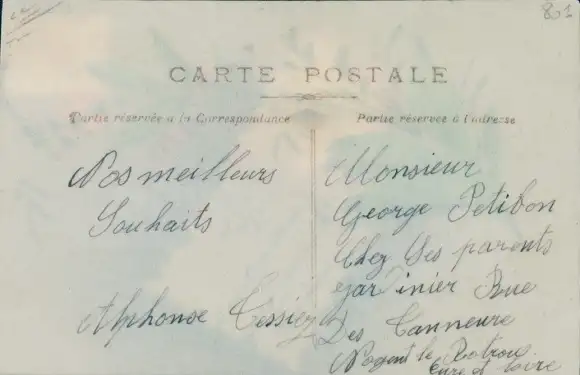 801
CARTE POSTALE
Partie réservée a la Correspondance
Partie réservée à l'adresse
Nos meilleurs
Souhaits
Alphonse Tessier
Monsieur
George Petibon
Chez Ses parents
jardinier Rue
Des Tanneure
Nogent le Rotrou
Eure et Loire